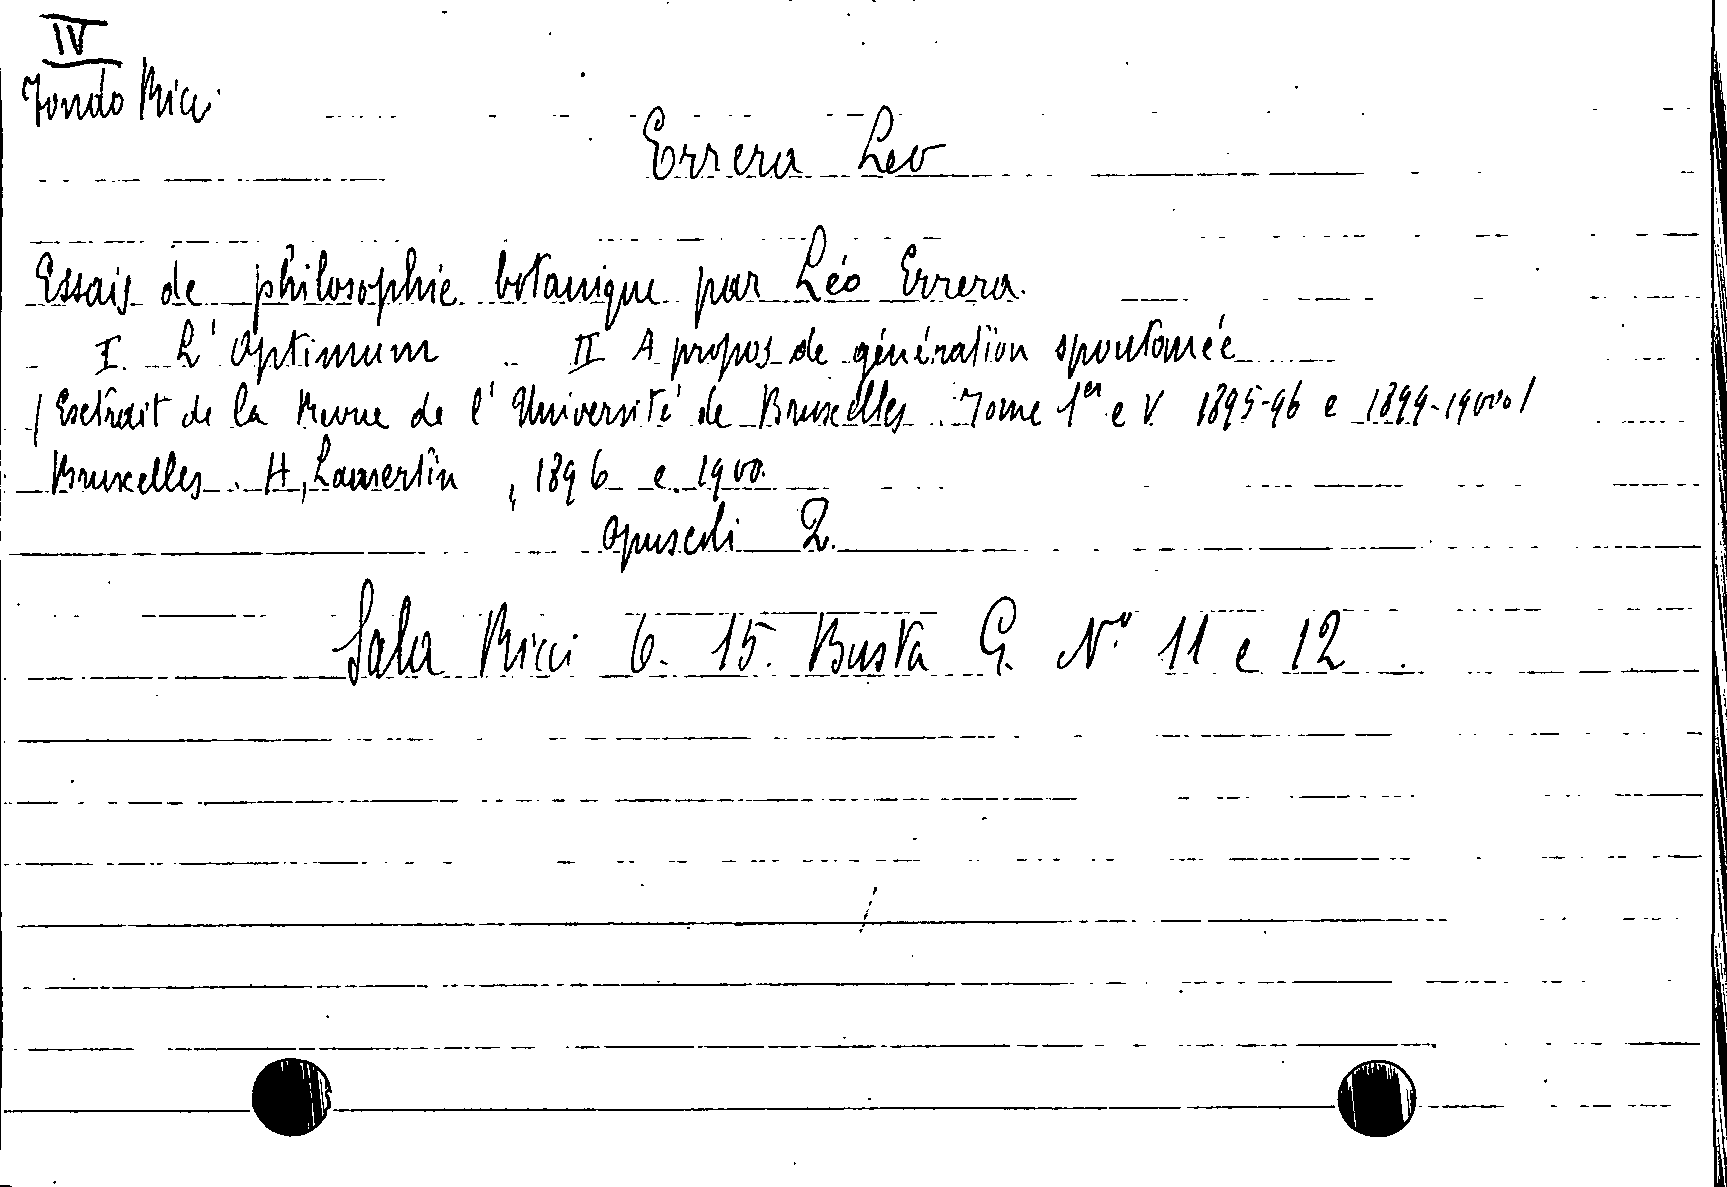 IV
Fondo Ricci
Errera Leo
Essais de philosophie botanique par Léo Errera.
I. L'Optimum II A propos de génération spontanée
/ Esctrait de la Revue de l'Université de Bruxelles. Tome 1er e V. 1895-96 e 1899-1900 /
Bruxelles. H, Lamertin, 1896 e 1900.
opuscoli 2.
Sala Ricci 6. 15. Busta G. N.o 11 e 12.